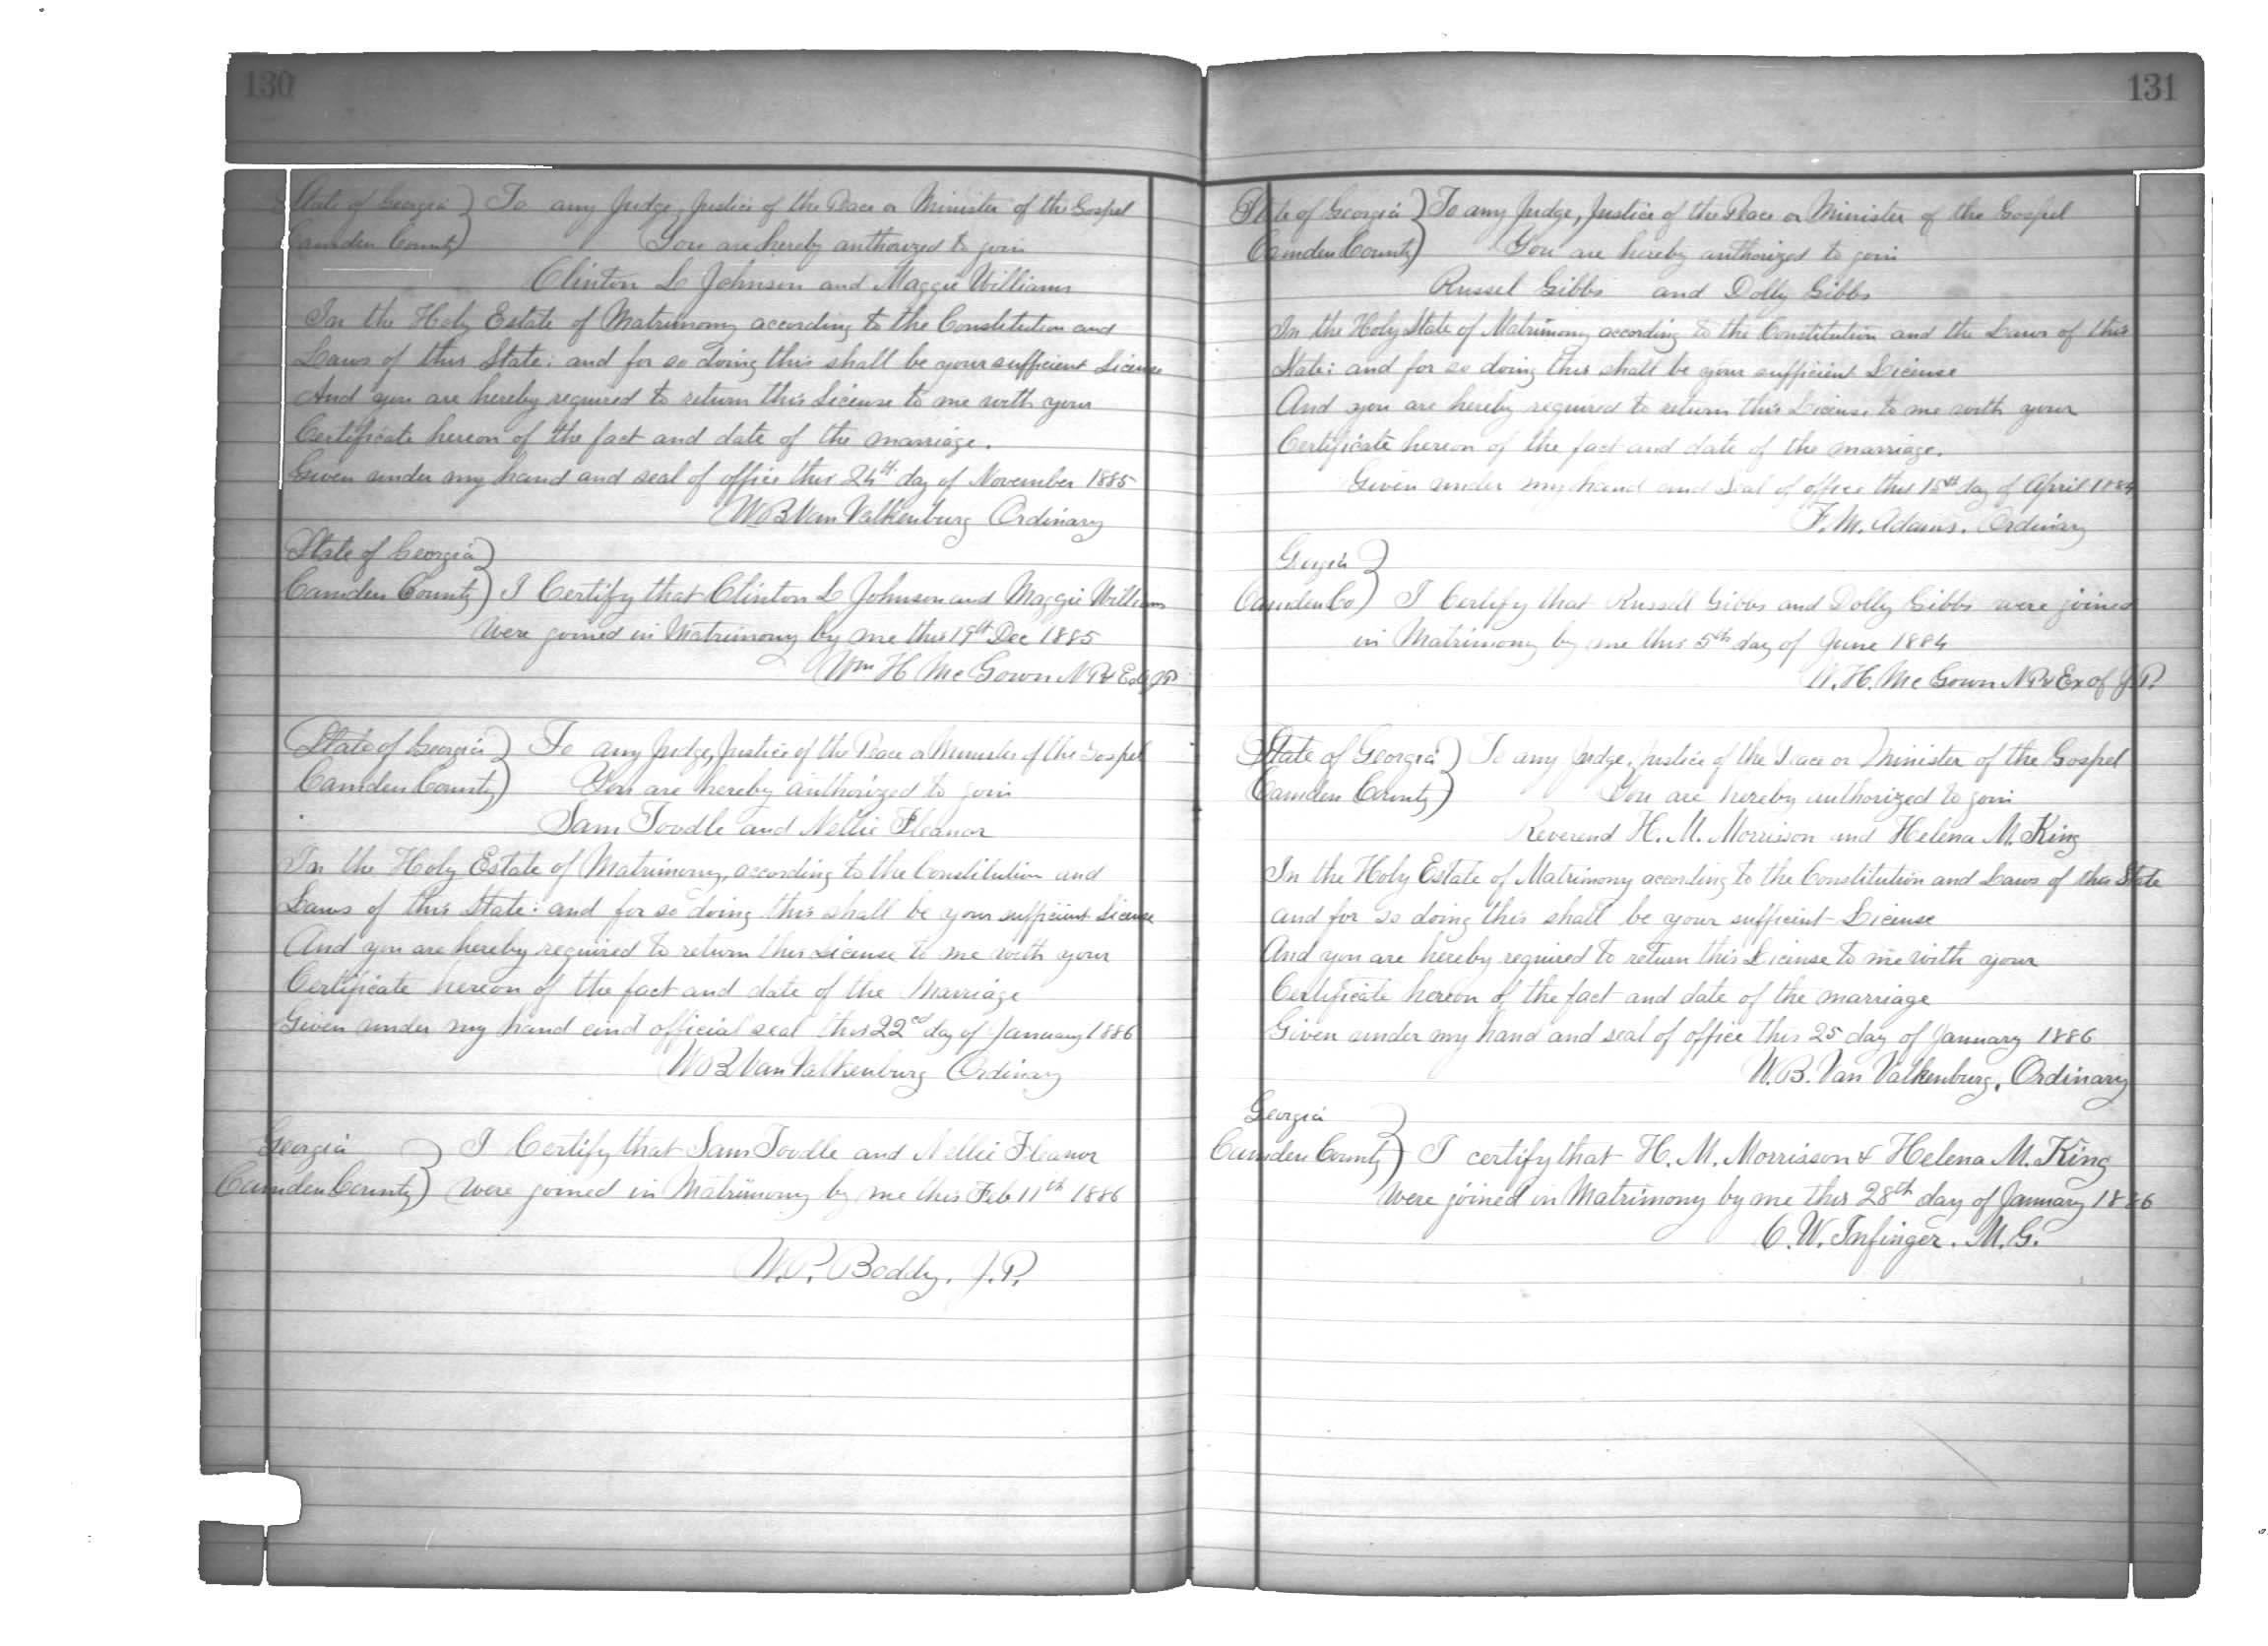 130
State of Georgia } To any Judge, Justice of the Peace or Minister of the Gospel
Camden County } You are hereby authorized to join
Clinton L Johnson and Maggie Williams
In the Holy Estate of Matrimony according to the Constitution and
Laws of this State: and for so doing this shall be your sufficient License
And you are hereby required to return this License to me with your
Certificate hereon of the fact and date of the marriage.
Given under my hand and seal of office this 24th day of November 1885
W B Van Valkenburg Ordinary
State of Georgia }
Camden County } I Certify that Clinton L Johnson and Maggie Williams
Were joined in Matrimony by me this 19th Dec 1885
Wm H McGown N P &
State of Georgia } To any Judge, Justice of the Peace or Minister of the Gospel
Camden County } You are hereby authorized to join
Sam Toodle and Nellie Fleanor
In the Holy Estate of Matrimony, according to the Constitution and
Laws of this State: and for so doing this shall be your sufficient License
And you are hereby required to return this License to me with your
Certificate hereon of the fact and date of the Marriage
Given under my hand and official seal this 22nd day of January 1886
W B Van Valkenburg Ordinary
Georgia } I Certify that Sam Toodle and Nellie Fleanor
Camden County } Were joined in Matrimony by me this Feb 11th 1886
W. P. Boddy. J. P.
131
State of Georgia } To any Judge, Justice of the Peace or Minister of the Gospel
Camden County } You are hereby authorized to join
Russel Gibbs and Dolly Gibbs
In the Holy State of Matrimony according to the Constitution and the Laws of this
State: and for so doing this shall be your sufficient License
And you are hereby required to return this License to me with your
Certificate hereon of the fact and date of the marriage.
Given under my hand and seal of office this 15th day of April 1884
F. M. Adams. Ordinary
Georgia }
Camden Co } I Certify that Russell Gibbs and Dolly Gibbs were joined
in Matrimony by me this 5th day of June 1884
W. H. McGown N P & Ex of J. P.
State of Georgia } To any Judge, Justice of the Peace or Minister of the Gospel
Camden County } You are hereby authorized to join
Reverend H. M. Morrison and Helena M. King
In the Holy Estate of Matrimony according to the Constitution and Laws of this State
and for so doing this shall be your sufficient License
And you are hereby required to return this License to me with your
Certificate hereon of the fact and date of the marriage
Given under my hand and seal of office this 25 day of January 1886
W. B. Van Valkenburg, Ordinary
Georgia }
Camden County } I certify that H. M. Morrisson & Helena M. King
Were joined in Matrimony by me this 28th day of January 1886
C. W. Infinger. M. G.